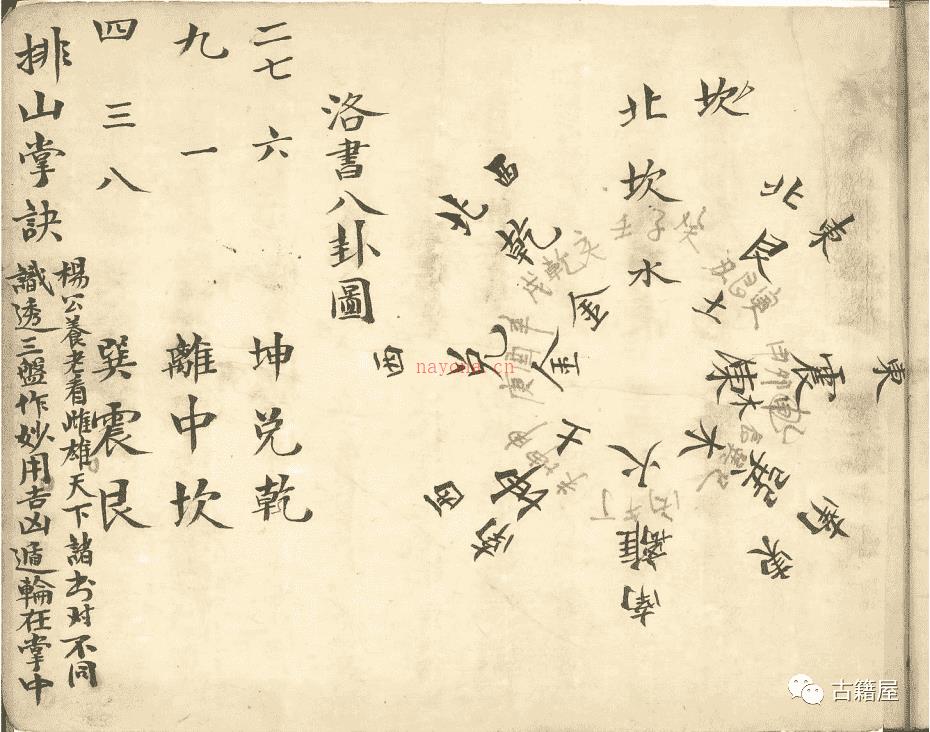 坎
北坎水
壬子癸
東北艮土
丑艮寅
東震木
東南巽木
南離火
丙午丁
西南坤土
西兌金
庚酉辛
西北乾金
戌乾亥
洛書八卦圖
二七 六 坤兌乾
九 一 離中坎
四 三 八 巽震艮
排山掌訣
楊公養老看雌雄天下諸书对不同
識透三盤作妙用吉凶遁輪在掌中
nayona.cn
古籍屋